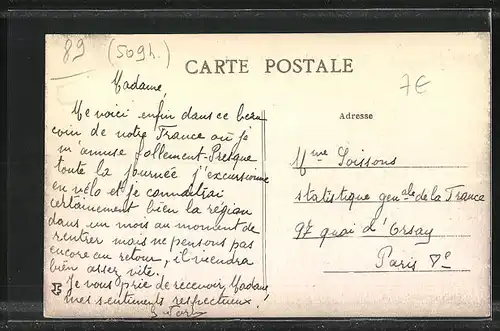 89 (509h.)
CARTE POSTALE
7€
Madame,
Adresse
Me voici enfin dans ce beau
coin de notre France où je
m'amuse follement. Presque
toute la journée j'excursionne
en vélo et je connaîtrai
certainement bien la région
dans un mois au moment de
rentrer mais ne pensons pas
encore au retour, il viendra
bien assez vite.
Je vous prie de recevoir, Madame
mes sentiments respectueux.
Mme Soissons
statistique genale de la France
97 quai d'Orsay
Paris 7e